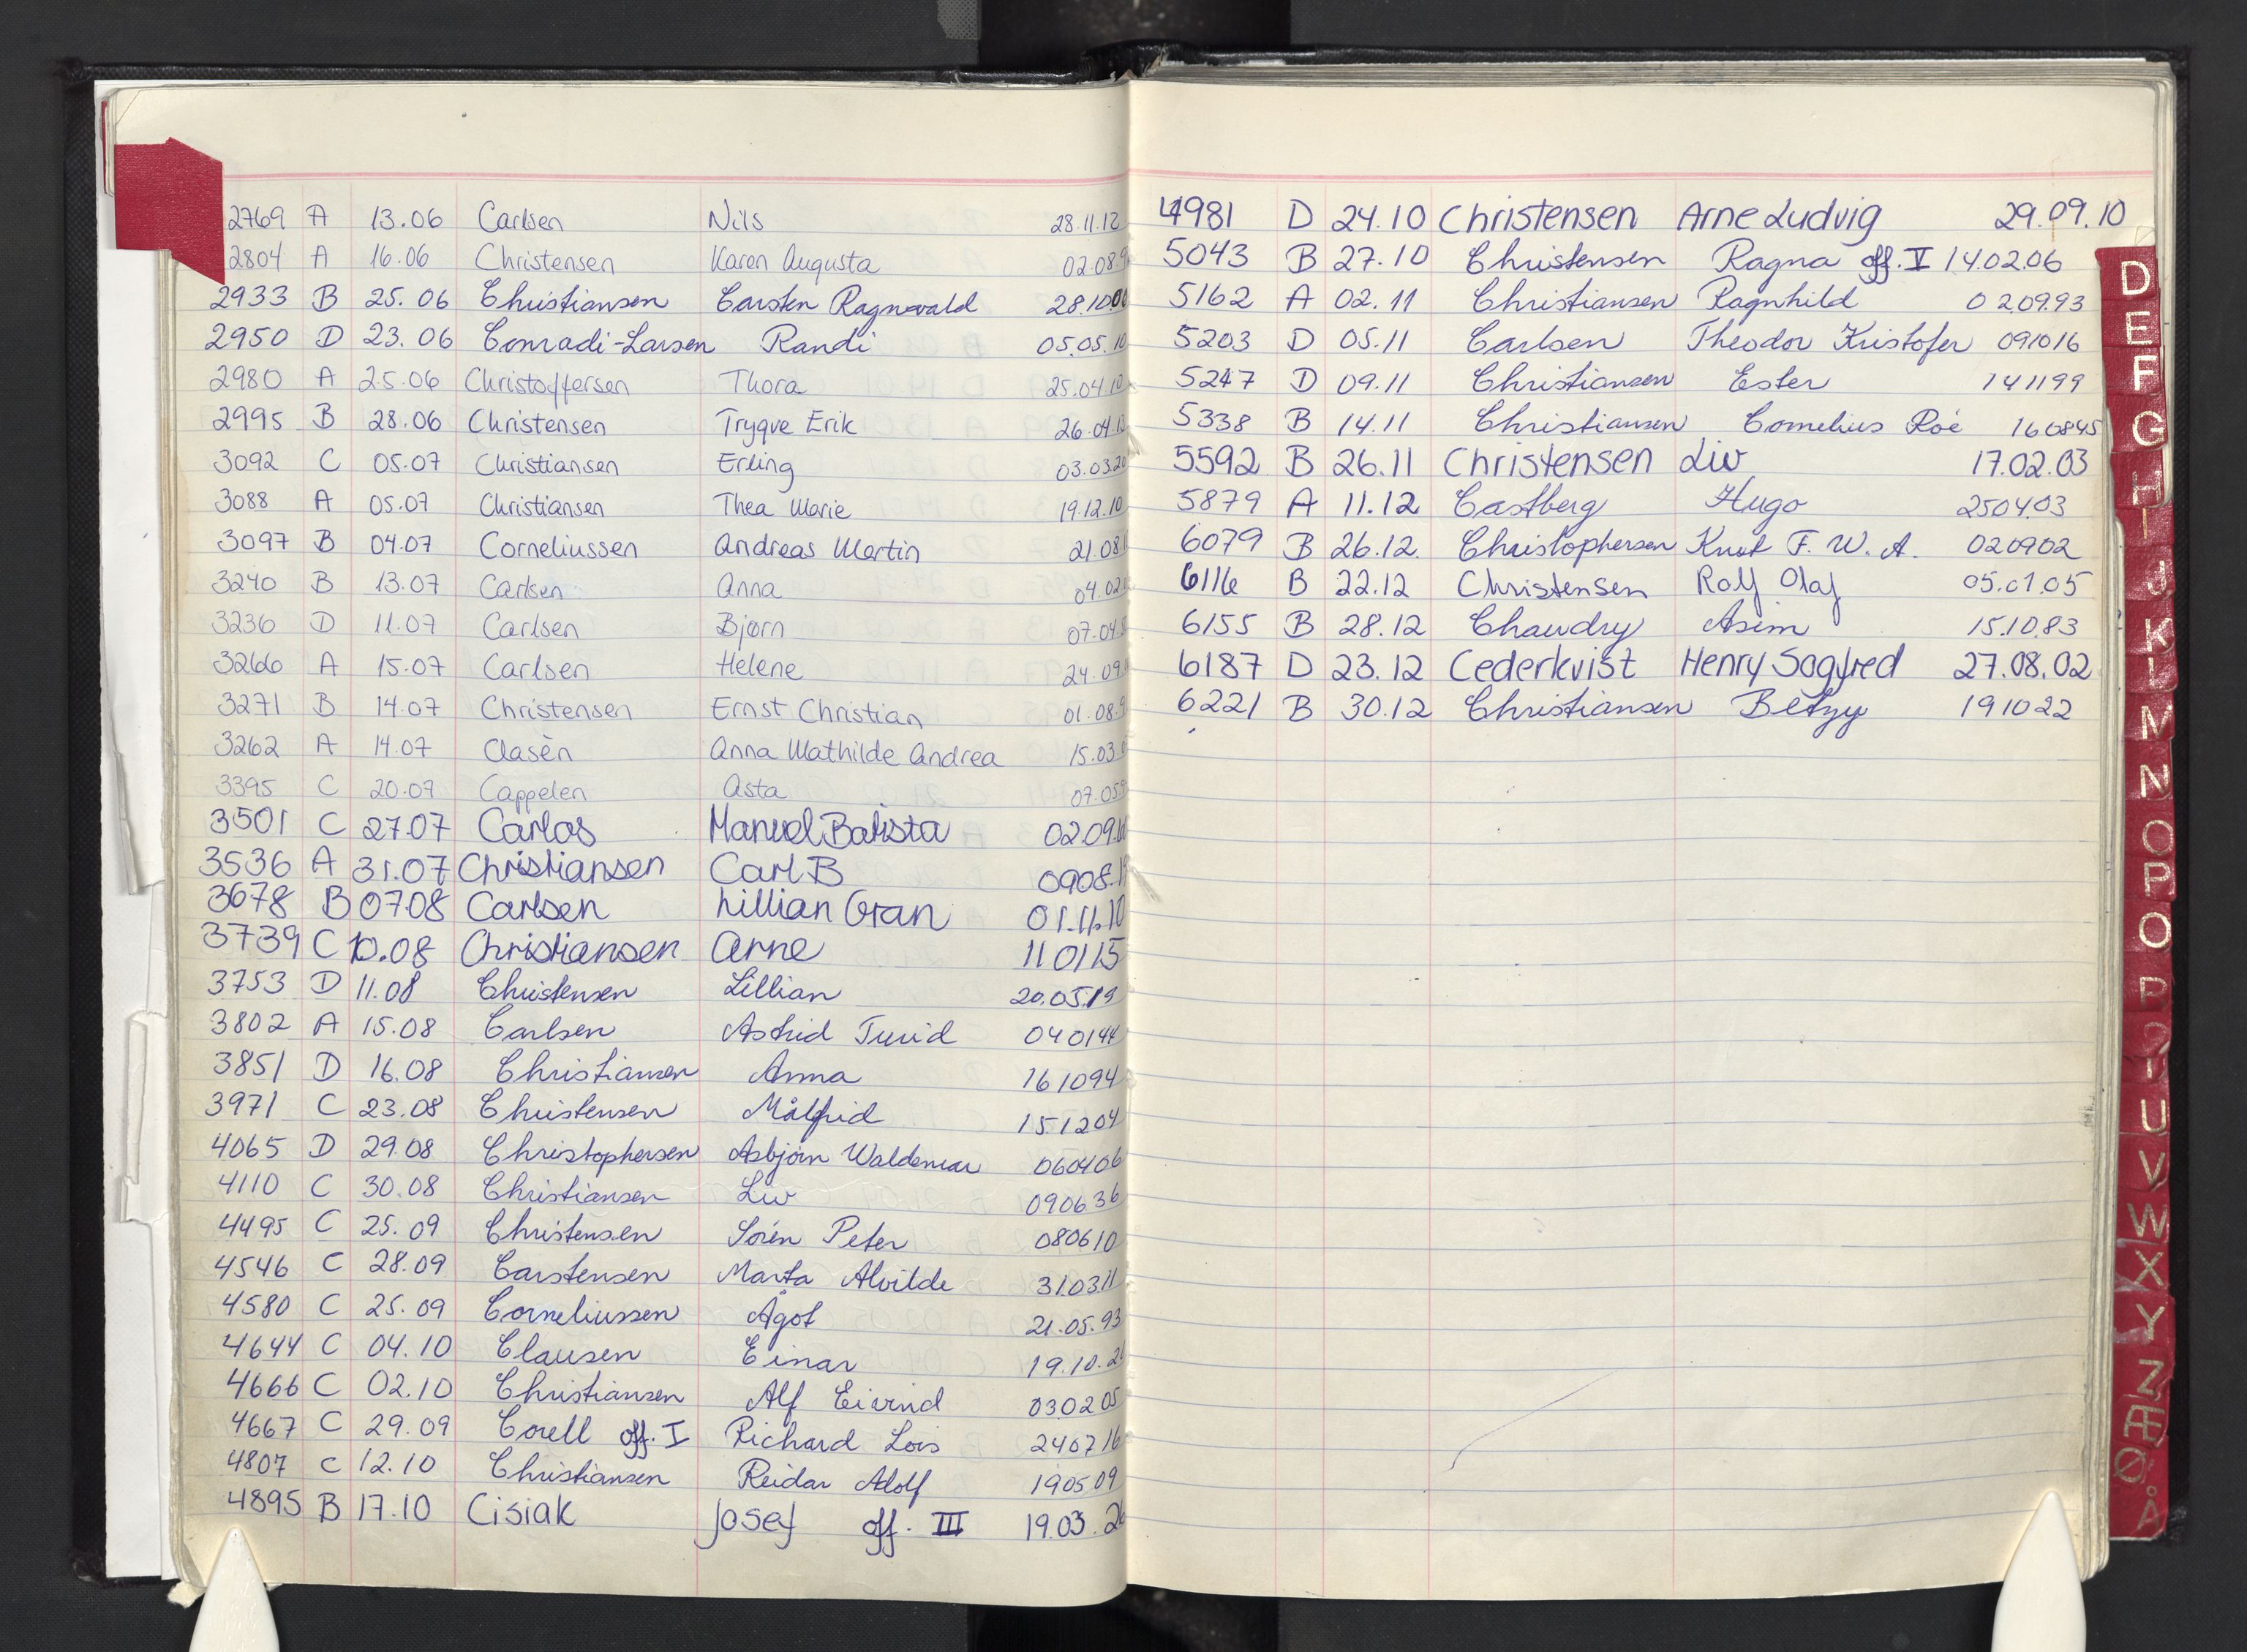 2769 A 13.06 Carlsen Nils 28.11.12
2804 A 16.06 Christensen Karen Augusta 02.08.9
2933 B 25.06 Christiansen Carsten Ragnvald 28.10.00
2950 D 23.06 Conradi-Larsen Randi 05.05.10
2980 A 25.06 Christoffersen Thora 25.04.10
2995 B 28.06 Christensen Trygve Erik 26.04.12
3092 C 05.07 Christiansen Erling 03.03.20
3088 A 05.07 Christiansen Thea Marie 19.12.10
3097 B 04.07 Corneliussen Andreas Martin 21.08
3240 B 13.07 Carlsen Anna 04.02
3236 D 11.07 Carlsen Bjørn 07.04
3266 A 15.07 Carlsen Helene 24.09
3271 B 14.07 Christensen Ernst Christian 01.08.9
3262 A 14.07 Clasèn Anna Mathilde Andrea 15.03
3395 C 20.07 Cappelen Asta 07.05
3501 C 27.07 Carlos Manuel Batista 02.09
3536 A 31.07 Christiansen Carl B 0908.1
3678 B 07.08 Carlsen Lillian Gran 01.11.10
3739 C 10.08 Christiansen Arne 110115
3753 D 11.08 Christensen Lillian 20.05.19
3802 A 15.08 Carlsen Astrid Turid 040144
3851 D 16.08 Christiansen Anna 161094
3971 C 23.08 Christensen Målfrid 151204
4065 D 29.08 Christophersen Asbjørn Waldemar 060406
4110 C 30.08 Christiansen Liv 090636
4495 C 25.09 Christensen Sören Peter 080610
4546 C 28.09 Carstensen Marta Alvilde 310311
4580 C 25.09 Corneliussen Ågot 21.05.93
4644 C 04.10 Clausen Einar 19.10.2
4666 C 02.10 Christiansen Alf Eivind 030205
4667 C 29.09 Corell off. I Richard Lois 240716
4807 C 12.10 Christiansen Reidar Adolf 190509
4895 B 17.10 Cisiak Josef off. III 19.03.26
4981 D 24.10 Christensen Arne Ludvig 29.09.10
5043 B 27.10 Christensen Ragna off. V 14.02.06
5162 A 02.11 Christiansen Ragnhild 020993
5203 D 05.11 Carlsen Theodor Kristofer 091016
5247 D 09.11 Christiansen Ester 141199
5338 B 14.11 Christiansen Cornelius Roé 160845
5592 B 26.11 Christensen Liv 17.02.03
5879 A 11.12 Castberg Hugo 250403
6079 B 26.12. Christophersen Knut F. W. A. 020902
6116 B 22.12 Christensen Rolf Olaf 05.01.05
6155 B 28.12 Chaudry Asim 15.10.83
6187 D 23.12 Cederkvist Henry Sogfred 27.08.02
6221 B 30.12 Christiansen Betzy 191022
D
E
F
G
H
I
J
K
L
M
N
O
P
O
P
U
V
W
X
Y
Z
Æ
Ø
Å